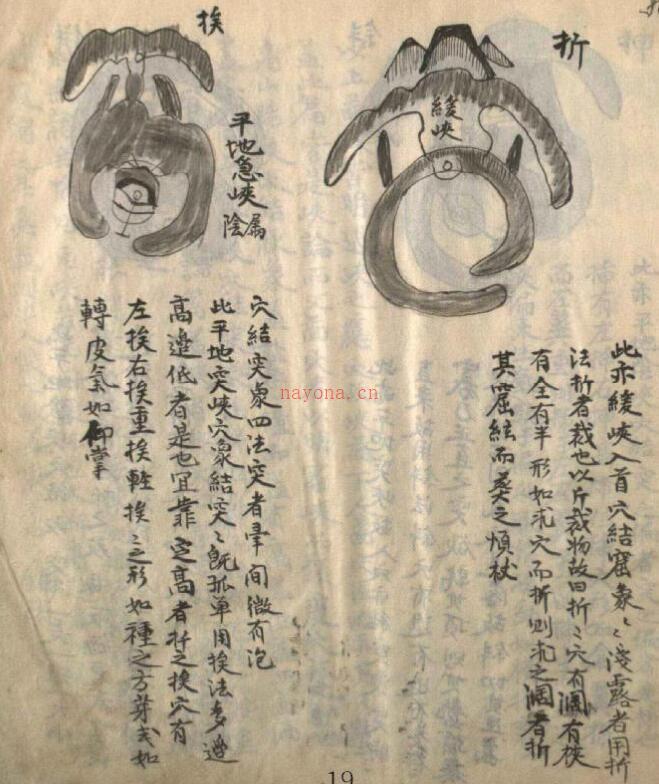 折
緩峽
此亦緩峽入首穴結窟象〻淺露者用折
法折者裁也以斤裁物故曰折〻穴有濶有狹
有全有半形如求穴而折則求之濶者折
其窟絃而葬之順杖
挨
平地急峽
属陰
穴結突象四法突者暈間微有泡
此平地突峽穴象結突〻既孤单用挨法多邊
高邊低者是也宜靠定高者扦之挨穴有
左挨右挨重挨輕挨〻之形如種之方芽或如
轉皮氣如仰掌
nayona.cn
19